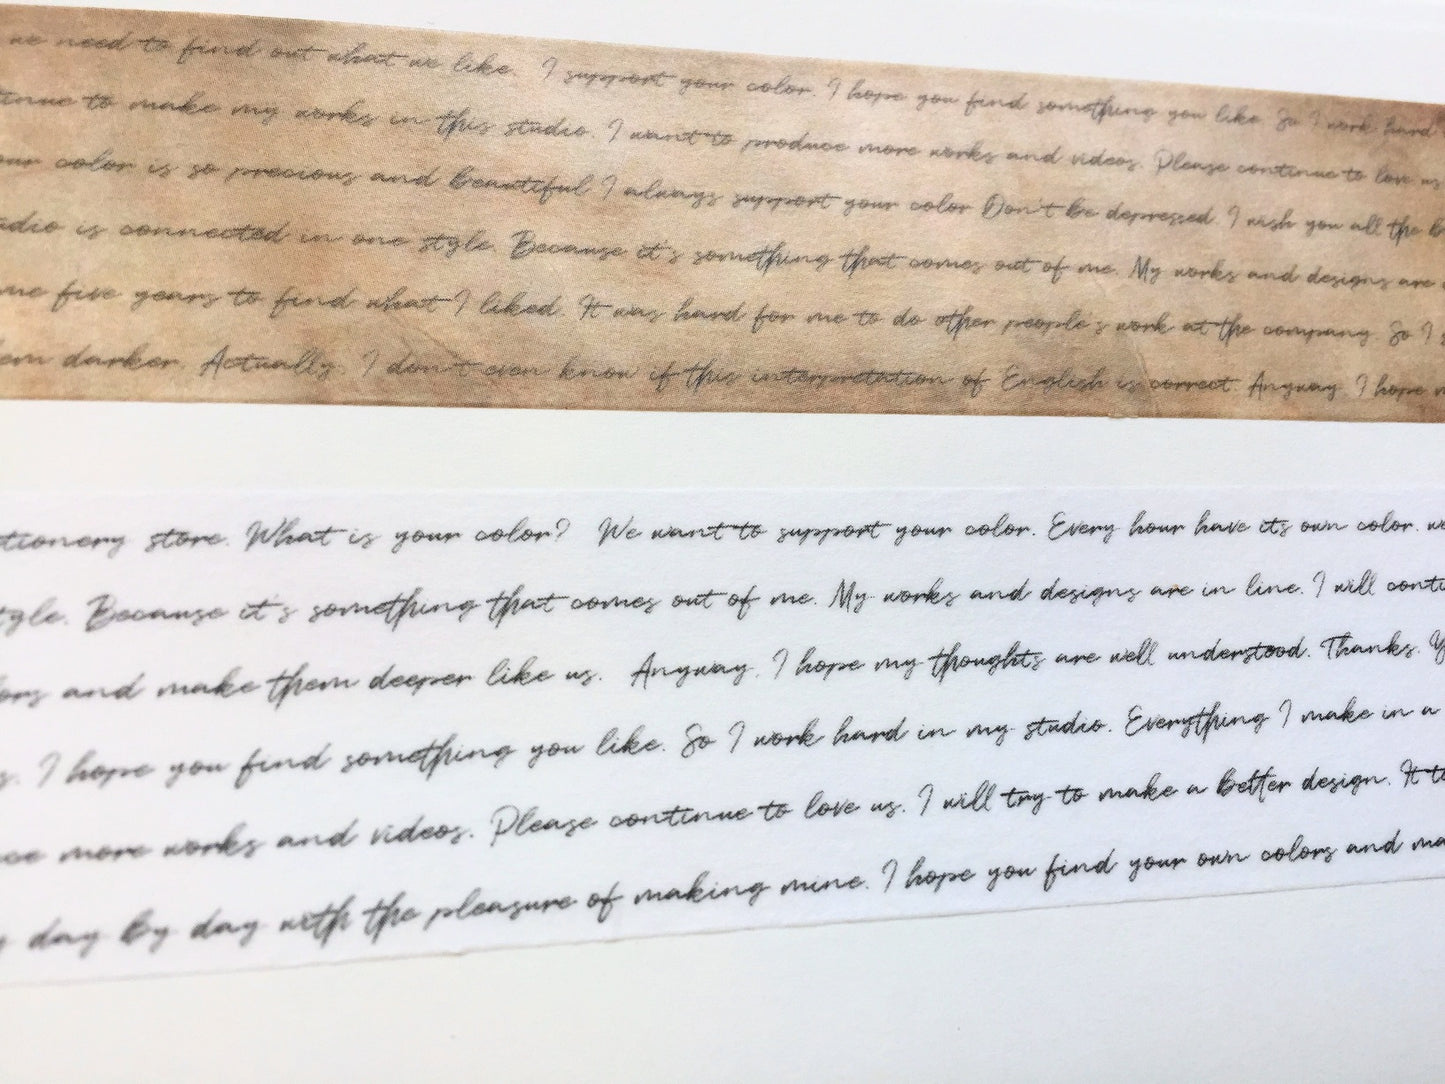 we need to find out what we like. I support your color. I hope you find something you like. So I work hard
tinue to make my works in this studio. I want to produce more works and videos. Please continue to love us
our color is so precious and beautiful I always support your color Don't be depressed. I wish you all the b
udio is connected in one style. Because it's something that comes out of me. My works and designs are
me five years to find what I liked. It was hard for me to do other people's work at the company. So I s
em darker. Actually, I don't even know if this interpretation of English is correct. Anyway, I hope m
tionery store. What is your color? We want to support your color. Every hour have its own color. we
tyle. Because it's something that comes out of me. My works and designs are in line. I will contin
ors and make them deeper like us. Anyway, I hope my thoughts are well understood. Thanks. Y
s. I hope you find something you like. So I work hard in my studio. Everything I make in a
ce more works and videos. Please continue to love us. I will try to make a better design. It to
y day by day with the pleasure of making mine. I hope you find your own colors and ma